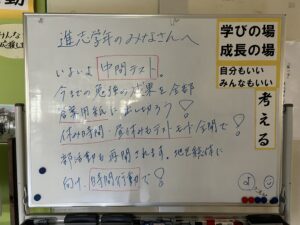 進志学年のみなさんへ
いよいよ 中間テスト。
今までの勉強の成果を全部
答案用紙に出し切ろう!
休み時間・昼休みもテストモード全開で!
部活動も再開されます。地区総体に
向け、時間行動で!
学びの場
成長の場
自分もいい
みんなもいい
考える